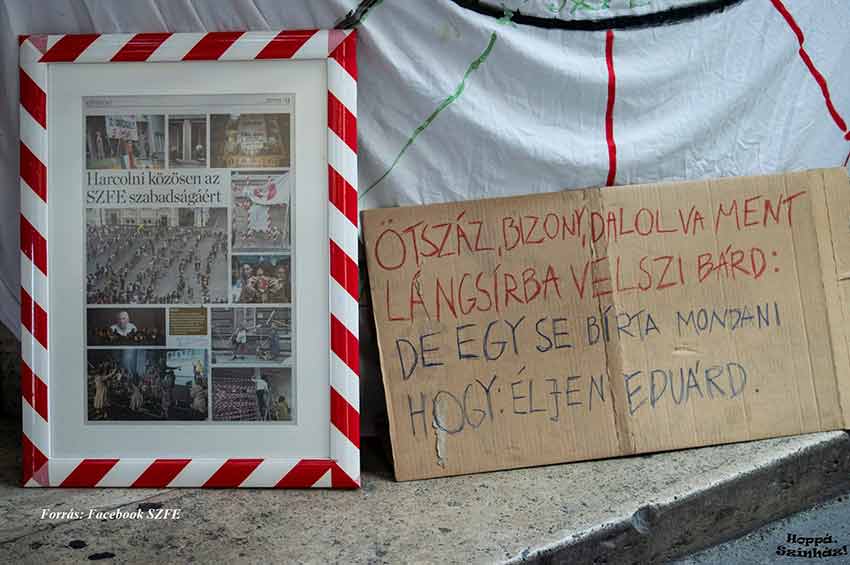 Harcolni közösen az
SZFE szabadságáért
ÖTSZÁZ, BIZONY, DALOLVA MENT
LÁNGSÍRBA VELSZI BÁRD:
DE EGY SE BÍRTA MONDANI
HOGY: ÉLJEN EDUÁRD.
Forrás: Facebook SZFE
Hoppá.
Színház!